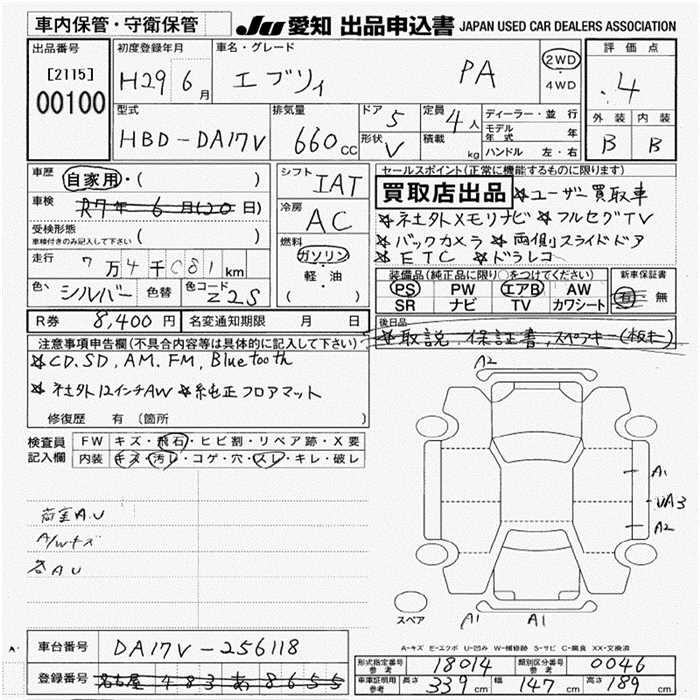 車内保管・守衛保管
JU 愛知 出品申込書 JAPAN USED CAR DEALERS ASSOCIATION
出品番号
[2115]
00100
初度登録年月
H29 6月
車名・グレード
エブリィ PA
2WD
・
4WD
評価点
4
外装 内装
B B
型式
HBD-DA17V
排気量
660 CC
ドア
5
形状
V
定員
4人
積載
kg
ディーラー・並行
モデル年式 年
ハンドル 左・右
車歴
自家用・( )
車検
R7年 6月(20日)
受検形態
車検付きのみ記入して下さい ( )
走行
7万4千081km
色
シルバー
色替
色コード
Z2S
シフト
IAT
冷房
AC
燃料
ガソリン
・
軽・油
( )
セールスポイント(正常に機能するものに限ります)
買取店出品 ☆ユーザー買取車
☆社外メモリナビ ☆フルセグTV
☆バックカメラ ☆両側スライドドア
☆ETC ☆ドラレコ
装備品(純正品に限り○をつけてください)
PS PW エアB AW
SR ナビ TV カワシート
新車保証書
有・無
R券 8,400円
名変通知期限 月 日
後日品
☆取説、保証書、スペアキー(板キー)
注意事項申告欄(不具合内容等は具体的に記入して下さい)
☆CD.SD,AM.FM,Bluetooth
☆社外12インチAW ☆純正フロアマット
修復歴 有(箇所 )
検査員記入欄
FW キズ・飛石・ヒビ割・リペア跡・X要
内装 キズ・汚レ・コゲ・穴・スレ・キレ・破レ
荷室A.U
A/Wキズ
各AU
A2
A1
UA3
A2
スペア
A1
A1
A-キズ E-エクボ U-凹み W-補修跡 S-サビ C-腐食 XX-交換済
車台番号 DA17V-256118
登録番号 名古屋 483 あ 8655
形式指定番号 参考 18014
類別区分番号 参考 0046
車庫証明用 参考 長さ 339cm 幅 147cm 高さ 189cm